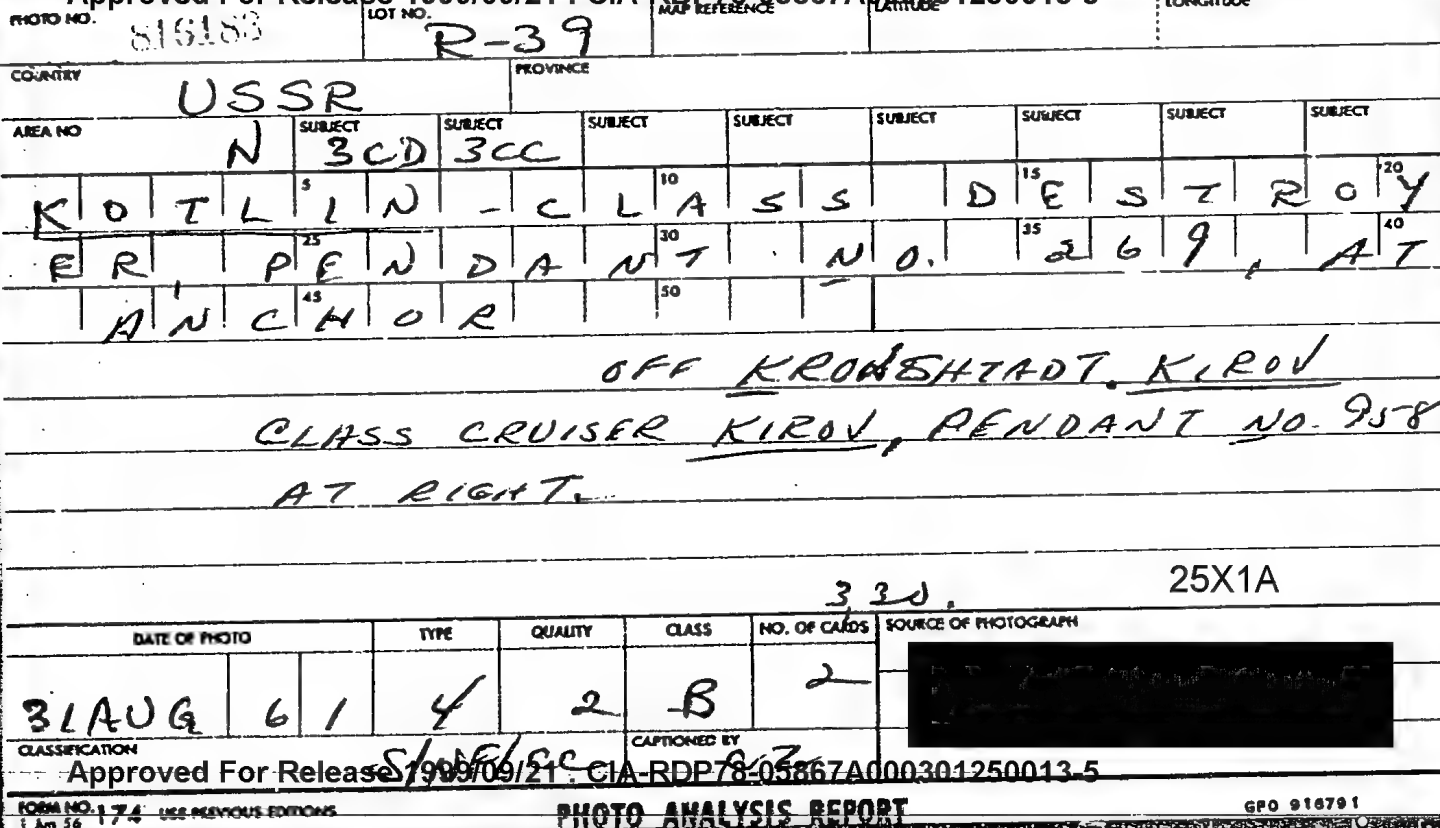 Approved For Release 1999/09/21 : CIA-RDP78-05867A000301250013-5
PHOTO NO. 816183 LOT NO. R-39 MAP REFERENCE LATITUDE LONGITUDE
COUNTRY USSR PROVINCE
AREA NO N SUBJECT 3CD SUBJECT 3CC SUBJECT SUBJECT SUBJECT SUBJECT SUBJECT SUBJECT
KOTLIN-CLASS DESTROY
5 10 15 20
ER, PENDANT NO. 269, AT
25 30 35 40
ANCHOR
45 50
OFF KRONSHTADT. KIROV
CLASS CRUISER KIROV, PENDANT NO. 958
AT RIGHT.
25X1A
DATE OF PHOTO TYPE QUALITY CLASS NO. OF CARDS SOURCE OF PHOTOGRAPH
31AUG 61 4 2 B 2
CLASSIFICATION CAPTIONED BY
Approved For Release 1999/09/21 : CIA-RDP78-05867A000301250013-5
FORM NO. 174 USE PREVIOUS EDITIONS PHOTO ANALYSIS REPORT GPO 916791
1 Apr 56